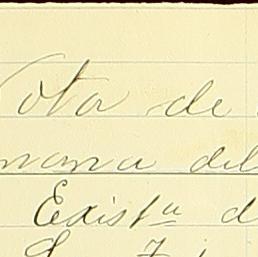 Nota de
mana del
Exist.ª d